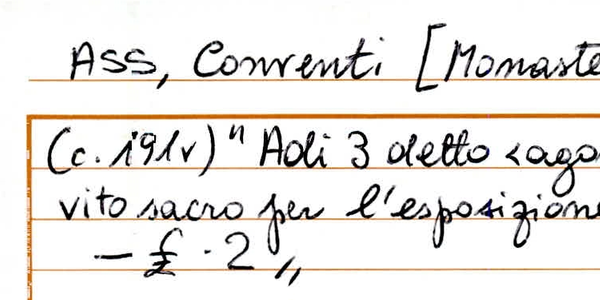 ASS, Conventi [Monaste
(c. 191v) " Adi 3 detto <ago
vito sacro per l'esposizione
- £ . 2 "